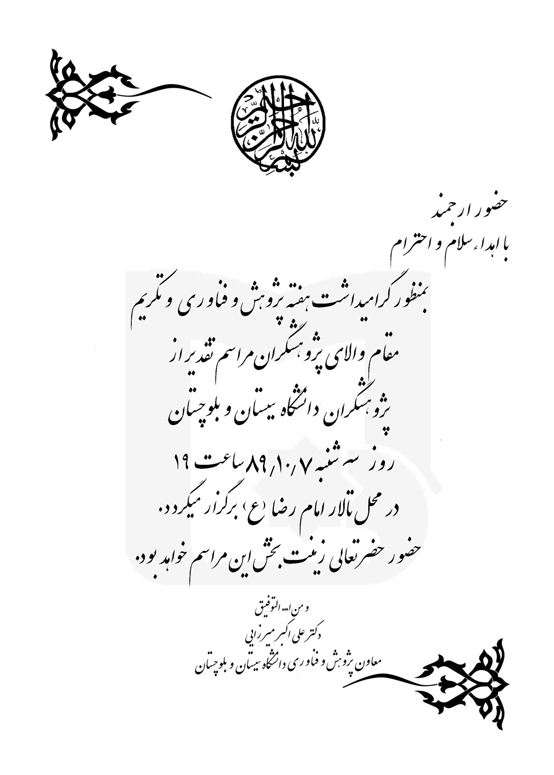 بسم الله الرحمن الرحیم
حضور ارجمند
با اهداء سلام و احترام
بمنظور گرامیداشت هفته پژوهش و فناوری و تکریم
مقام والای پژوهشگران مراسم تقدیر از
پژوهشگران دانشگاه سیستان و بلوچستان
روز سه شنبه ۸۹٫۱۰٫۷ ساعت ۱۹
در محل تالار امام رضا (ع) برگزار میگردد.
حضور حضرتعالی زینت بخش این مراسم خواهد بود.
و من ا... التوفیق
دکتر علی اکبر میرزایی
معاون پژوهش و فناوری دانشگاه سیستان و بلوچستان